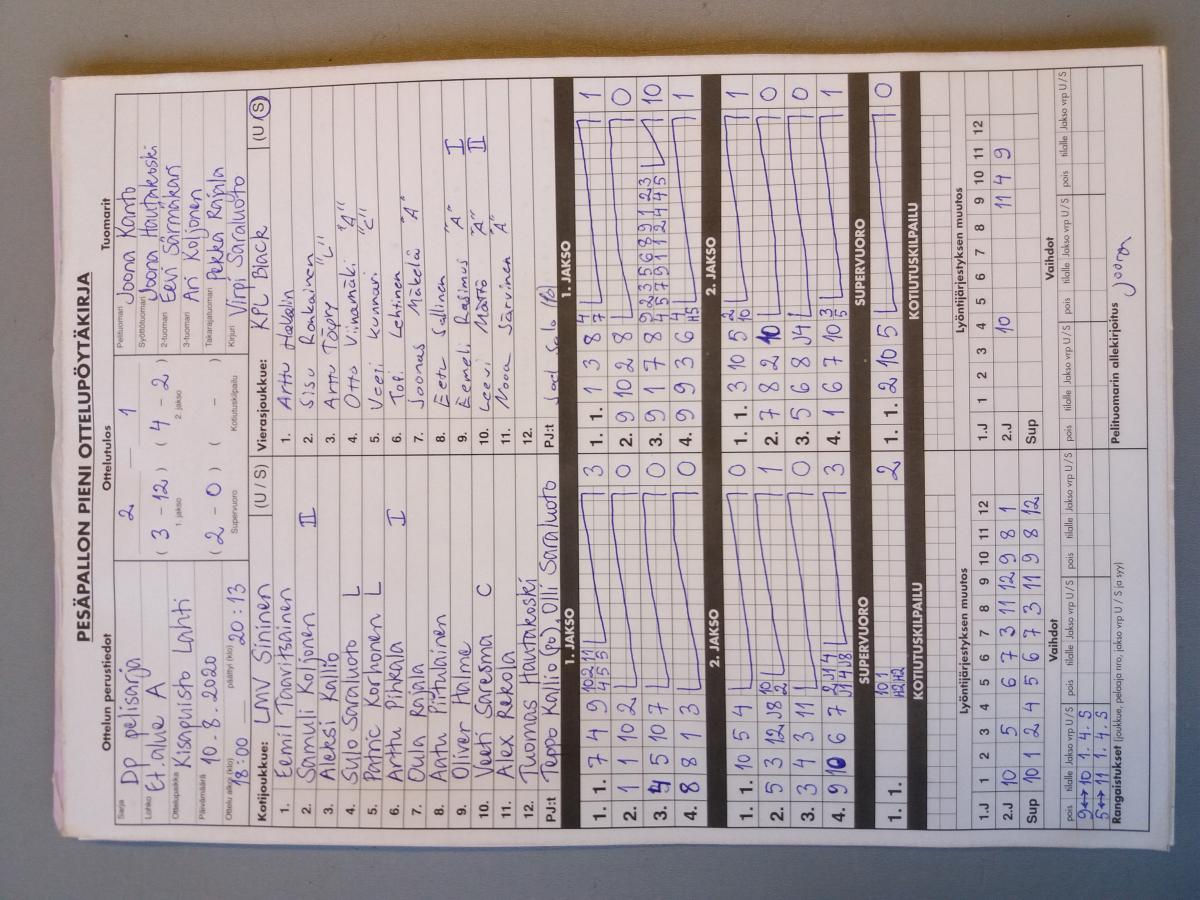 PESÄPALLON PIENI OTTELUPÖYTÄKIRJA
Ottelun perustiedot Ottelutulos Tuomarit
Sarja DP pelisarja
Lohko Et.alue A
Ottelupaikka Kisapuisto Lahti
Päivämäärä 10.8.2020
Ottelu alkoi (klo) 18:00 päättyi (klo) 20:13
2 1
( 3 - 12 ) ( 4 - 2 )
1. jakso 2. jakso
( 2 - 0 ) ( - )
Supervuoro Kotiutuskilpailu
Pelituomari Joona Kanto
Syöttötuomari Joona Hautakoski
2-tuomari Eevi Särmäkari
3-tuomari Ari Koljonen
Takarajatuomari Pekka Rajala
Kirjuri Virpi Saraluoto
Kotijoukkue: LMV Sininen (U / S)
1. Eemi Taavitsainen
2. Samuli Koljonen II
3. Aleksi Kallio
4. Sulo Saraluoto L
5. Patric Korhonen L
6. Arttu Pihkala I
7. Oula Rajala
8. Aatu Piitulainen
9. Oliver Halme
10. Veeti Saresma C
11. Alex Rekola
12. Tuomas Hautakoski
PJ:t Teppo Kallio (pj), Olli Saraluoto
Vierasjoukkue: KPL Black (U / S)
1. Arttu
2. Sisu Ronkainen
3. Arttu Töyry "L"
4. Otto Viinamäki "A"
5. Veeti Kunnari "C"
6. Topi Lehtinen
7. Joonas Mäkelä "A"
8. Eetu Sallinen
9. Eemeli Rasimus "A" I
10. Leevi Mättö "A" II
11. Nooa Järvinen "A"
12.
PJ:t Salo
1. JAKSO
1. 1. 7 4 9 3
2. 1 10 2 0
3. 4 5 10 7 0
4. 8 8 1 3 0
2. JAKSO
1. 1. 10 5 4 0
2. 5 3 12 J8 1
3. 3 4 3 11 0
4. 9 10 6 7 3
SUPERVUORO
1. 1. 2
KOTIUTUSKILPAILU
1. JAKSO
1. 1. 1 3 8 1
2. 9 10 2 8 0
3. 9 1 7 8 10
4. 9 9 3 6 1
2. JAKSO
1. 1. 3 10 5 1
2. 7 8 2 10 0
3. 5 6 8 J4 0
4. 1 6 7 10 1
SUPERVUORO
1. 1. 2 10 5 0
KOTIUTUSKILPAILU
Lyöntijärjestyksen muutos
1.J 1 2 3 4 5 6 7 8 9 10 11 12
2.J 10 5 6 7 3 11 12 9 8 1
Sup 10 1 2 4 5 6 7 3 11 9 8 12
Vaihdot
pois tilalle Jakso vrp U / S pois tilalle Jakso vrp U / S pois tilalle Jakso vrp U / S
9 ↔ 10 1. 4. S
5 ↔ 11 1. 4. S
Lyöntijärjestyksen muutos
1.J 1 2 3 4 5 6 7 8 9 10 11 12
2.J 10 11 4 9
Sup
Vaihdot
pois tilalle Jakso vrp U / S pois tilalle Jakso vrp U / S pois tilalle Jakso vrp U / S
Rangaistukset (joukkue, pelaaja nro, jakso vrp U / S ja syy)
Pelituomarin allekirjoitus